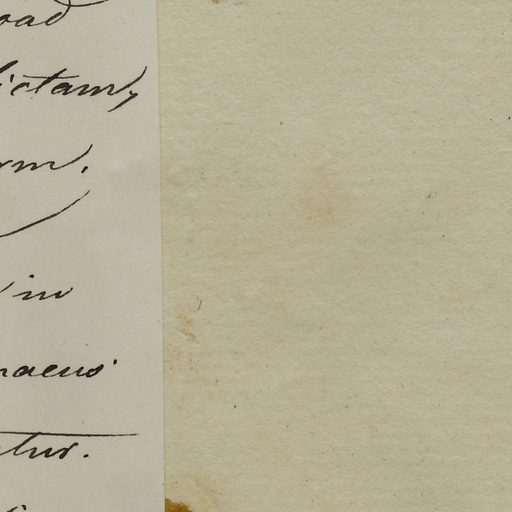 oad
ictam,
rm.
in
naeus
tur.